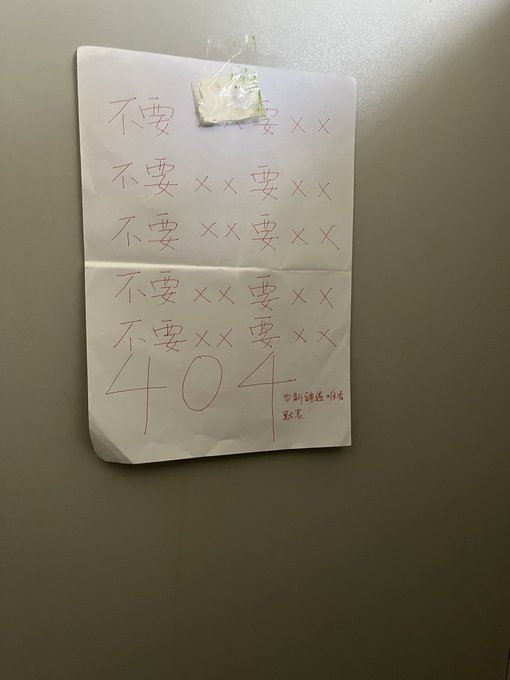 不要 要××
不要××要××
不要××要××
不要××要××
不要××要××
404
为新疆遇难者
默哀